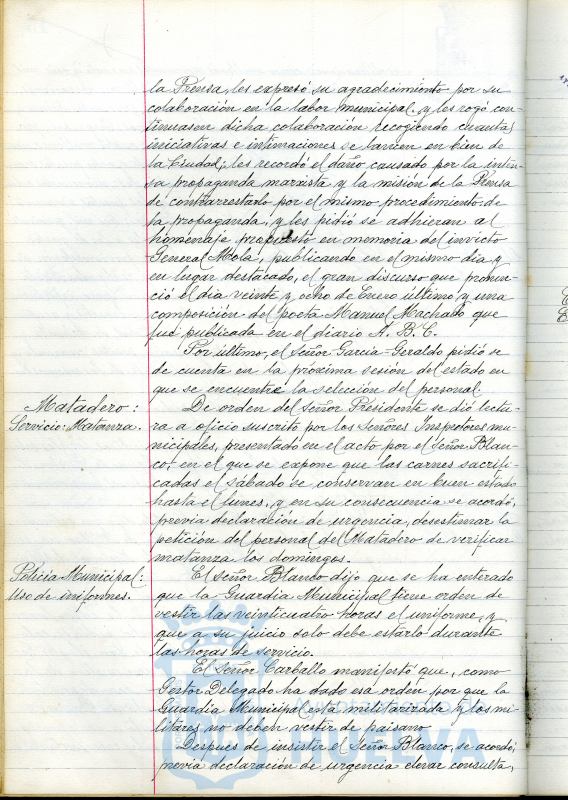 la Prensa, les expresó su agradecimiento por su
colaboración en la labor municipal y les rogó con-
tinuasen dicha colaboración recogiendo cuantas
iniciativas e intimaciones se lancen en bien de
la Ciudad; les recordó el daño causado por la inten-
sa propaganda marxista y la misión de la Prensa
de contrarrestarlo por el mismo procedimiento de
la propaganda, y les pidió se adhieran al
homenaje propuesto en memoria del invicto
General Mola, publicando en el mismo dia y
en lugar destacado, el gran discurso que pronun-
ció el dia veinte y ocho de Enero último y una
composición del poeta Manuel Machado que
fué publicada en el diario A. B. C.
Por último, el Señor García-Geraldo pidió se
de cuenta en la próxima sesión del estado en
que se encuentre la selección del personal.
Matadero:
Servicio Matanza.
De orden del Señor Presidente se dió lectu-
ra a oficio suscrito por los Señores Inspectores mu-
nicipales, presentado en el acto por el Señor Blan-
co, en el que se expone que las carnes sacrifi-
cadas el sábado se conservan en buen estado
hasta el lunes, y en su consecuencia se acordó,
previa declaración de urgencia, desestimar la
petición del personal del Matadero de verificar
matanza los domingos.
Policía Municipal:
Uso de uniformes.
El Señor Blanco dijo que se ha enterado
que la Guardia Municipal tiene orden de
vestir las veinticuatro horas el uniforme, y
que a su juicio solo debe estarlo durante
las horas de servicio.
El Señor Carballo manifestó que, como
Gestor Delegado ha dado esa orden por que la
Guardia Municipal está militarizada y los mi-
litares no deben vestir de paisano.
Despues de insistir el Señor Blanco, se acordó,
previa declaración de urgencia elevar consulta,
HUELVA